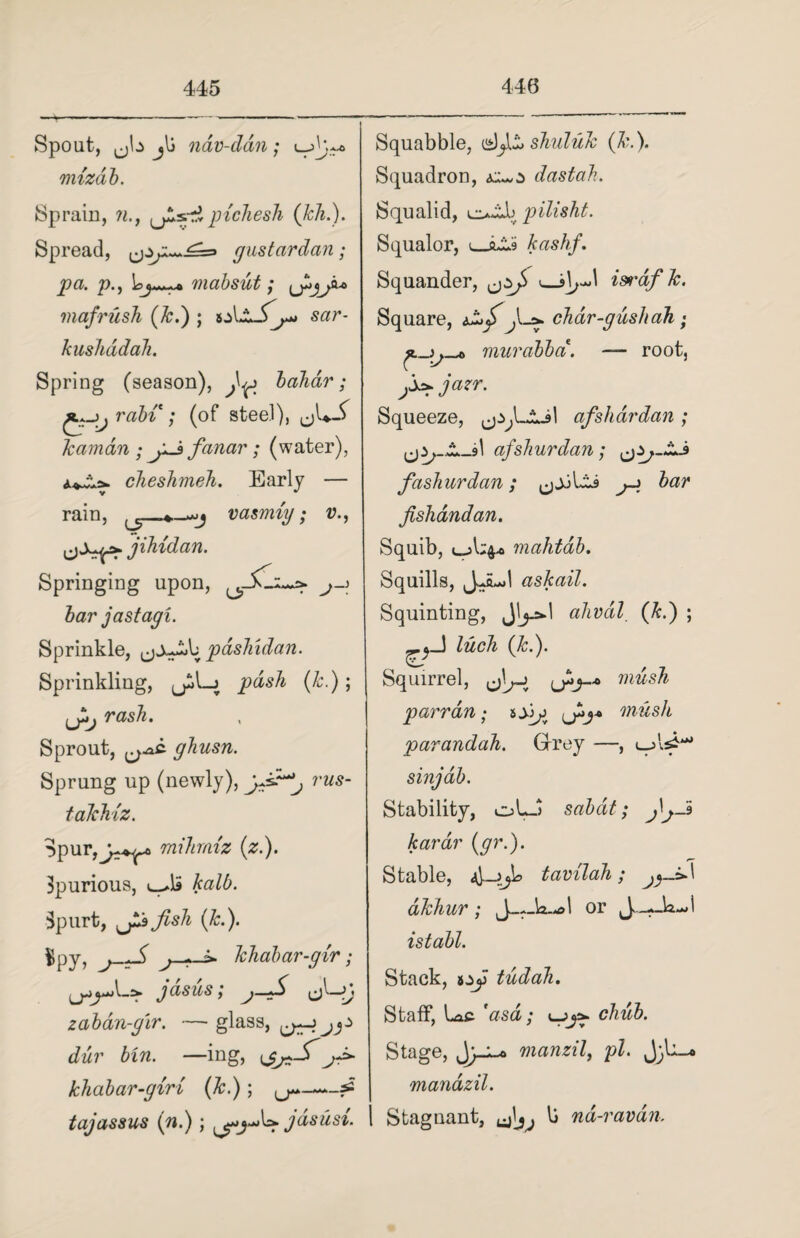 445
446
Spout, ناو دان náv-dán; میزاب
mízáb.
Sprain, n., پیچش píchesh (kh.).
Spread, گستردن gustardan;
pa. p., مبسوط mabsút; مفروش
mafrúsh (k.); سرکشاده sar-
kushádah.
Spring (season), بهار bahár;
ربیع rabí‘; (of steel), کمان
kamán; فنر fanar; (water),
چشمه cheshmeh. Early —
rain, وسمی vasmíy; v.,
جهیدن jihídan.
Springing upon, بر جستگی
bar jastagí.
Sprinkle, پاشیدن páshídan.
Sprinkling, پاش pásh (k.);
رش rash.
Sprout, غصن ghusn.
Sprung up (newly), رستخیز rus-
takhíz.
Spur, مهمیز mihmíz (z.).
Spurious, قلب kalb.
Spurt, فش fish (k.).
Spy, خبر گیر khabar-gír;
جاسوس jásús; زبان گیر
zabán-gír. — glass, دور بین
dúr bín. —ing, خبر گیری
khabar-gírí (k.); تجسس
tajassus (n.); جاسوسی jásúsí.
Squabble, شلوك shulúk (k.).
Squadron, دسته dastah.
Squalid, پلشت pilisht.
Squalor, قشف kashf.
Squander, اسراف کردن isráf k.
Square, چار گوشه chár-gúshah;
مربع murabba‘. — root,
جذر jazr.
Squeeze, افشاردن afshárdan;
افشردن afshurdan; فشردن
fashurdan; بر فشاندن bar
fishándan.
Squib, مهتاب mahtáb.
Squills, اسقیل askail.
Squinting, احوال ahvál (k.);
لوچ lúch (k.).
Squirrel, موش پران músh
parrán; موش پرنده músh
parandah. Grey —, سنجاب
sinjáb.
Stability, ثبات sabát; قرار
karár (gr.).
Stable, طویله tavílah; آخور
ákhur; اصطبل or اسطبل
istabl.
Stack, توده túdah.
Staff, عصا 'asá; چوب chúb.
Stage, منزل manzil, pl. منازل
manázil.
Stagnant, نا روان ná-raván.